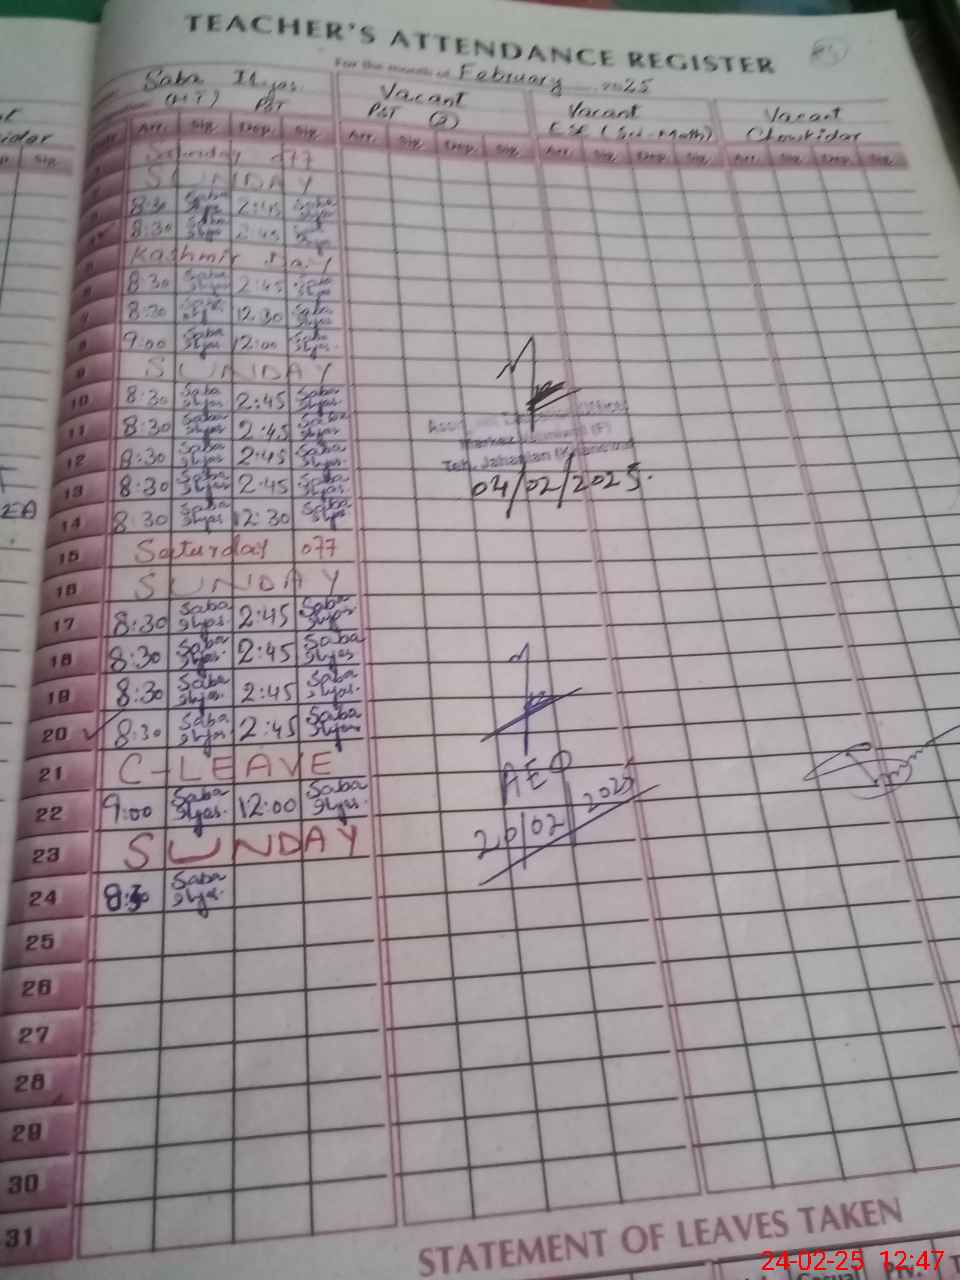 TEACHER'S ATTENDANCE REGISTER
For the month of February 2025
Saba Ilyas
(HT) PST
Vacant
PST (2)
Vacant
ESE (Sci-Math)
Vacant
Chowkidar
Arr. Sig. Dep. Sig. Arr. Sig. Dep. Sig. Arr. Sig. Dep. Sig. Arr. Sig. Dep. Sig.
Saturday off
SUNDAY
8:30 Saba Ilyas 2:45 Saba Ilyas
8:30 Saba Ilyas 2:45
5 Kashmir Day
6 8:30 Saba Ilyas 2:45 Saba Ilyas
7 8:30 12:30 Saba Ilyas
8 9:00 Saba Ilyas 12:00 Saba Ilyas
9 SUNDAY
10 8:30 Saba Ilyas 2:45 Saba Ilyas
11 8:30 Saba Ilyas 2:45 Saba Ilyas
12 8:30 Saba Ilyas 2:45 Saba Ilyas
13 8:30 Saba Ilyas 2:45 Saba Ilyas
14 8:30 Saba Ilyas 12:30 Saba Ilyas
15 Saturday off
16 SUNDAY
17 8:30 Saba Ilyas 2:45 Saba Ilyas
18 8:30 Saba Ilyas 2:45 Saba Ilyas
19 8:30 Saba Ilyas 2:45 Saba Ilyas
20 8:30 Saba Ilyas 2:45 Saba Ilyas
21 C-LEAVE
22 9:00 Saba Ilyas 12:00 Saba Ilyas
23 SUNDAY
24 8:30 Saba Ilyas
25
26
27
28
29
30
31
Teh. Jahanian (Khanewal)
04/02/2025.
AEO
20/02/2025
STATEMENT OF LEAVES TAKEN
24-02-25 12:47